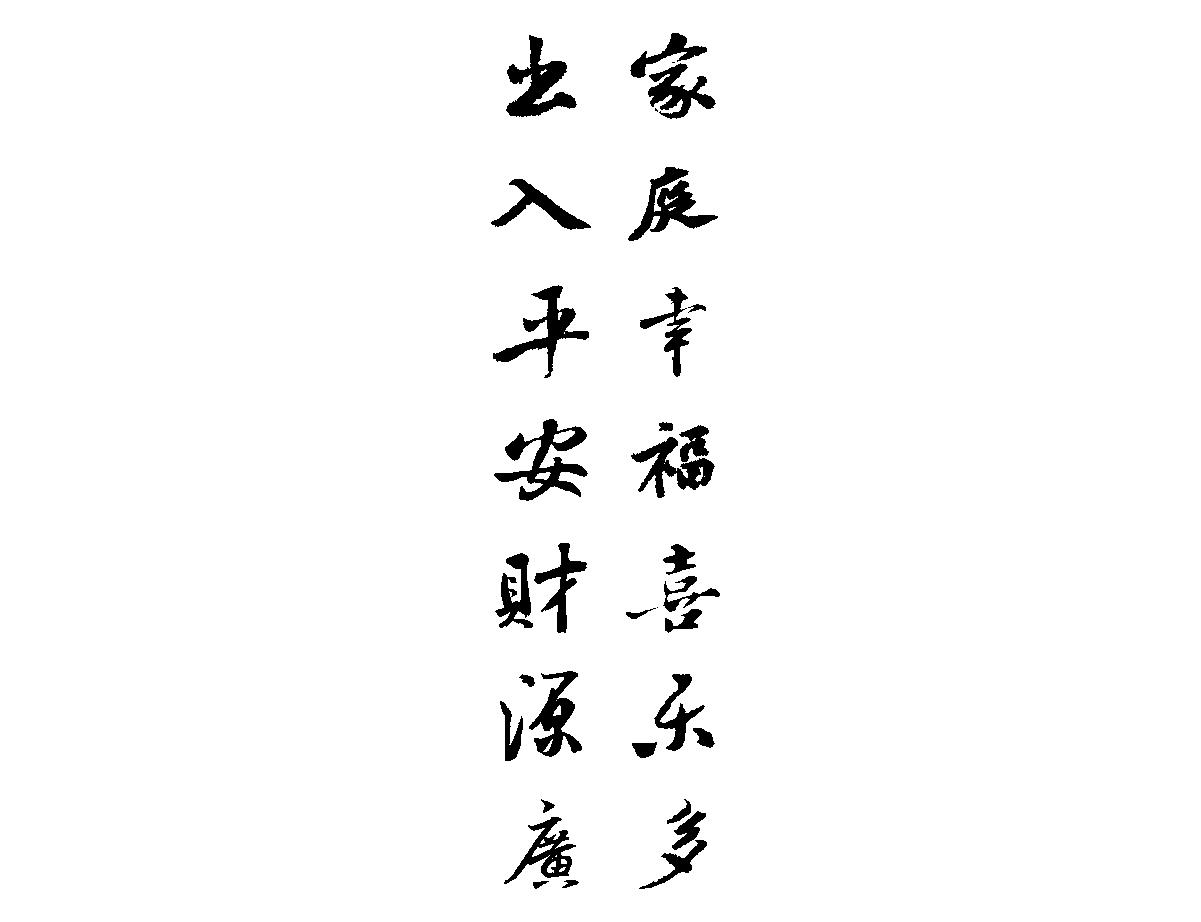 家庭幸福喜乐多
出入平安財源廣